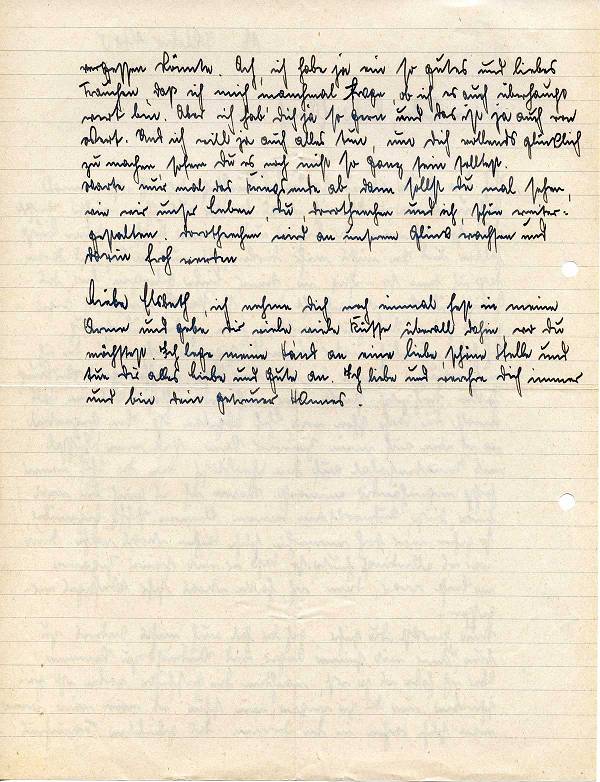 vergessen könnte. Ach, ich habe ja ein so gutes und liebes
Frauchen, daß ich mich manchmal frage, ob ich es auch überhaupt
wert bin. Aber ich hab' Dich ja so gern und das ist ja auch von
Wert. Und ich will ja auch alles tun, um Dich vollends glücklich
zu machen, sofern Du es noch nicht so ganz sein solltest.
Warte nur mal das Kriegsende ab, dann sollst Du mal sehen,
wie wir unser Leben, Du, Dorothenchen und ich, schön weiter-
gestalten. Dorothenchen wird an unserem Glück wachsen und
darin froh werden
Liebe Elsbeth, ich nehme Dich noch einmal fest in meine
Arme und gebe Dir viele viele Küsse überall dahin wo Du
möchtest. Ich lege meine Hand an eine liebe, schöne Stelle und
tue Dir alles Liebe und Gute an. Ich liebe und verehre Dich immer
und bin Dein getreuer Hannes.